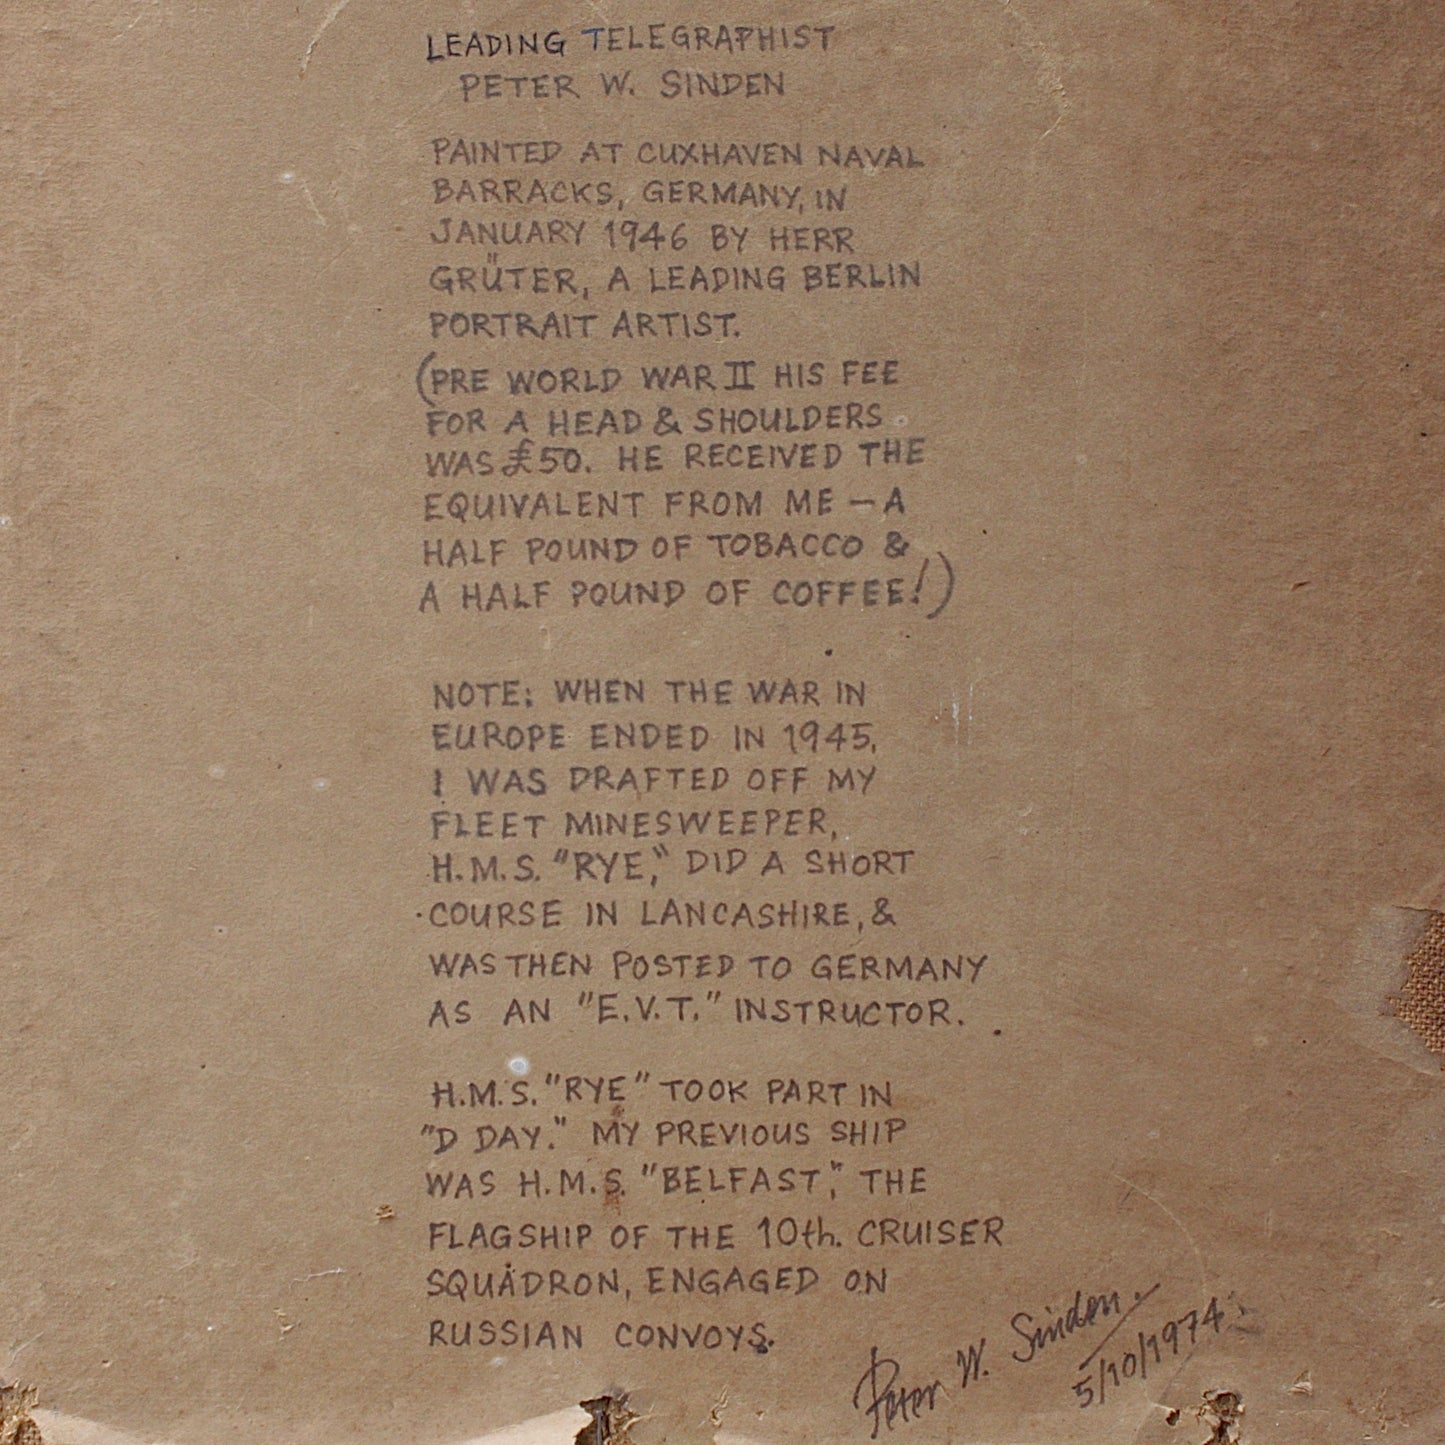 LEADING TELEGRAPHIST
PETER W. SINDEN
PAINTED AT CUXHAVEN NAVAL
BARRACKS, GERMANY, IN
JANUARY 1946 BY HERR
GRÜTER, A LEADING BERLIN
PORTRAIT ARTIST.
(PRE WORLD WAR II HIS FEE
FOR A HEAD & SHOULDERS
WAS £50. HE RECEIVED THE
EQUIVALENT FROM ME – A
HALF POUND OF TOBACCO &
A HALF POUND OF COFFEE!)
NOTE: WHEN THE WAR IN
EUROPE ENDED IN 1945,
I WAS DRAFTED OFF MY
FLEET MINESWEEPER,
H.M.S. "RYE," DID A SHORT
COURSE IN LANCASHIRE, &
WAS THEN POSTED TO GERMANY
AS AN "E.V.T." INSTRUCTOR.
H.M.S. "RYE" TOOK PART IN
"D DAY." MY PREVIOUS SHIP
WAS H.M.S. "BELFAST," THE
FLAGSHIP OF THE 10th. CRUISER
SQUADRON, ENGAGED ON
RUSSIAN CONVOYS.
Peter W. Sinden.
5/10/1974.